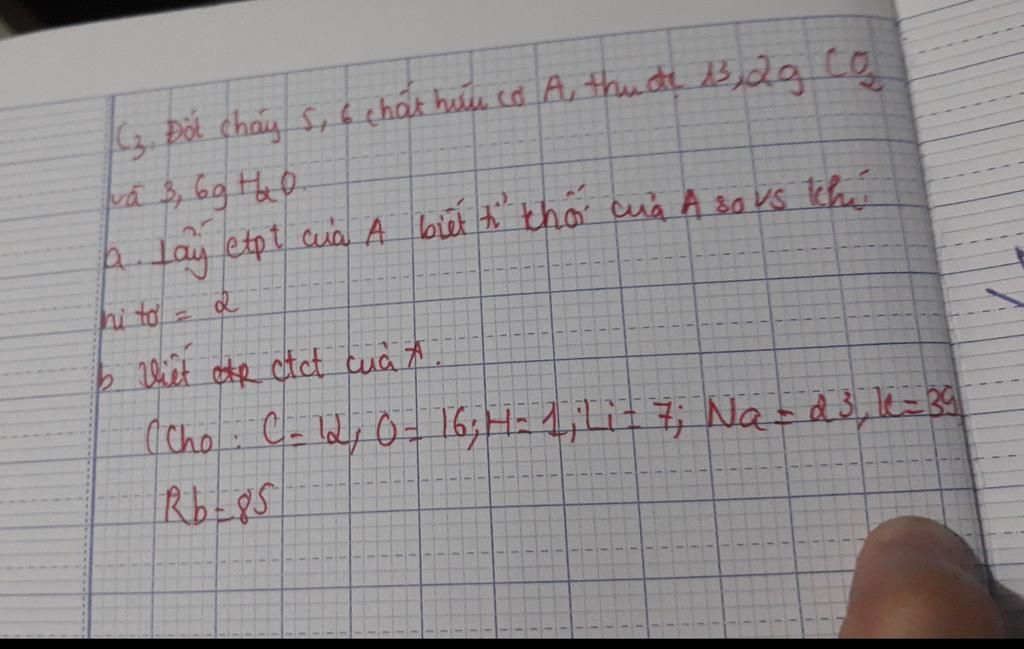 C3. Đốt cháy 5,6 chất hữu cơ A, thu đc 13,2g CO2
và 3,6g H2O.
a. Lấy ctpt của A biết tỉ khối của A so vs khí
ni tơ = 2
b Viết ctct của A.
(Cho : C = 12, O = 16; H = 1; Li = 7; Na = 23, K = 39
Rb = 85